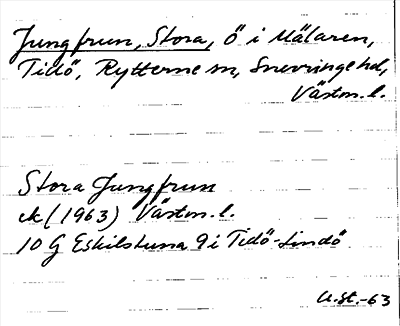 Jungfrun, Stora, Ö i Mälaren,
Tidö, Rytterne sn, Snevringe hd,
Västm. l.
Stora Jungfrun
ek (1963) Västm. l.
10 G Eskilstuna 9 i Tidö-Lindö
U.St.-63